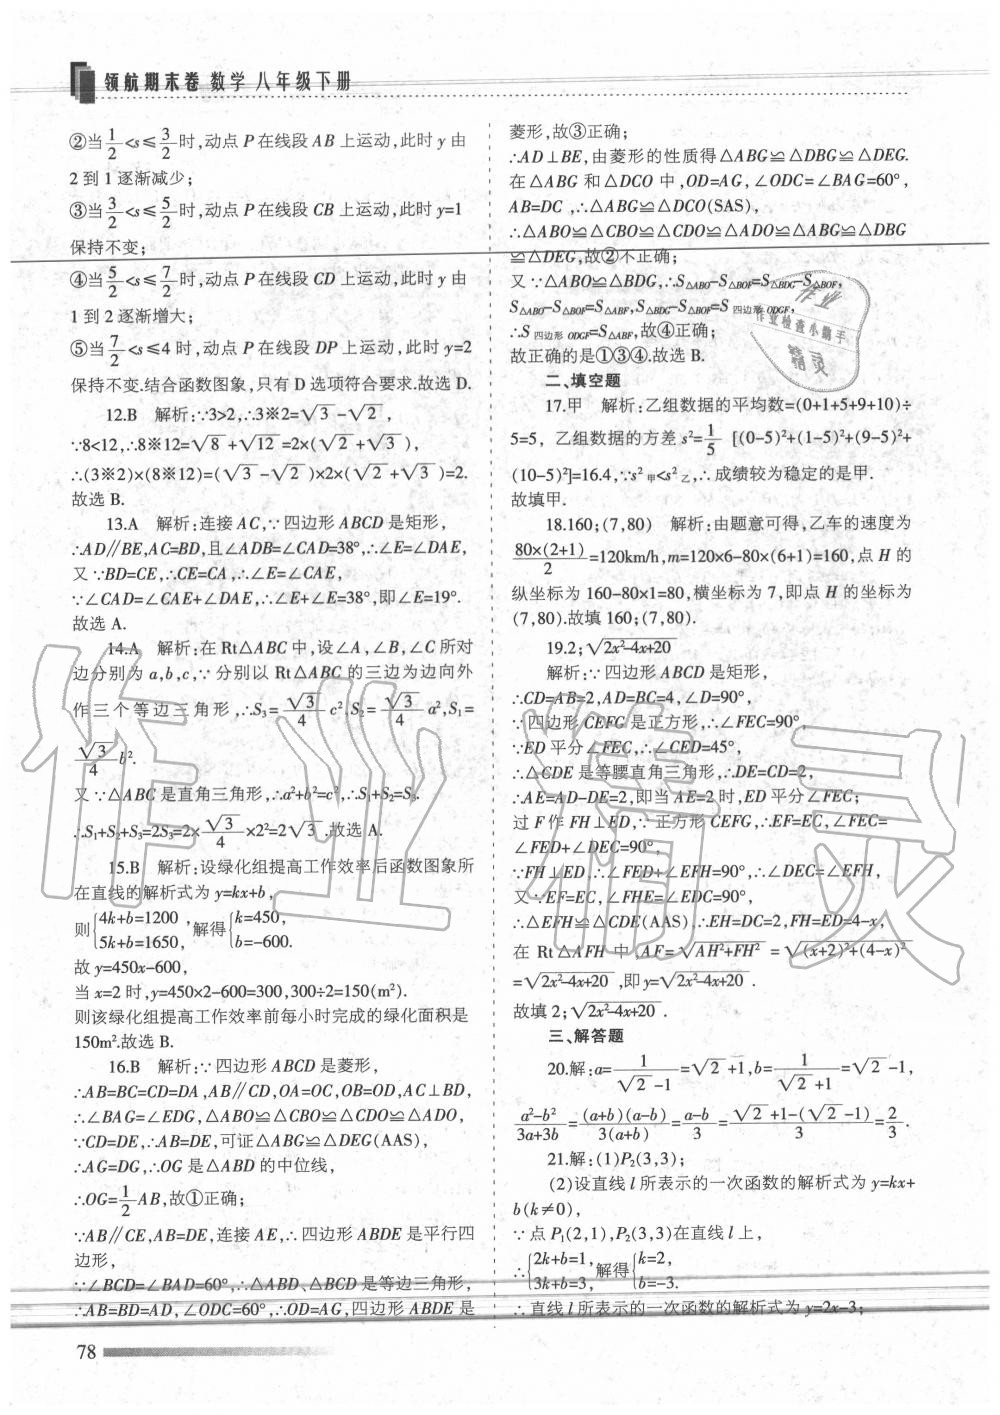 领航期末卷 数学 八年级下册
②当1/2<s≤3/2时,动点P在线段AB上运动,此时y由
2到1逐渐减少;
③当3/2<s≤5/2时,动点P在线段CB上运动,此时y=1
保持不变;
④当5/2<s≤7/2时,动点P在线段CD上运动,此时y由
1到2逐渐增大;
⑤当7/2<s≤4时,动点P在线段DP上运动,此时y=2
保持不变.结合函数图象,只有D选项符合要求.故选D.
12.B 解析:∵3>2,∴3※2=√3-√2,
∵8<12,∴8※12=√8+√12=2×(√2+√3),
∴(3※2)×(8※12)=(√3-√2)×2×(√2+√3)=2.
故选B.
13.A 解析:连接AC,∵四边形ABCD是矩形,
∴AD∥BE,AC=BD,且∠ADB=∠CAD=38°,∴∠E=∠DAE,
又∵BD=CE,∴CE=CA,∴∠E=∠CAE,
∵∠CAD=∠CAE+∠DAE,∴∠E+∠E=38°,即∠E=19°.
故选A.
14.A 解析:在Rt△ABC中,设∠A,∠B,∠C所对
边分别为a,b,c,∵分别以Rt△ABC的三边为边向外
作三个等边三角形,∴S₃=√3/4 c²,S₂=√3/4 a²,S₁=
√3/4 b².
又∵△ABC是直角三角形,∴a²+b²=c²,∴S₁+S₂=S₃.
∴S₁+S₂+S₃=2S₃=2×√3/4×2²=2√3.故选A.
15.B 解析:设绿化组提高工作效率后函数图象所
在直线的解析式为y=kx+b,
则{4k+b=1200, 5k+b=1650, 解得{k=450, b=-600.
故y=450x-600,
当x=2时,y=450×2-600=300,300÷2=150(m²).
则该绿化组提高工作效率前每小时完成的绿化面积是
150m².故选B.
16.B 解析:∵四边形ABCD是菱形,
∴AB=BC=CD=DA,AB∥CD,OA=OC,OB=OD,AC⊥BD,
∴∠BAG=∠EDG,△ABO≌△CBO≌△CDO≌△ADO,
∵CD=DE,∴AB=DE,可证△ABG≌△DEG(AAS),
∴AG=DG,∴OG是△ABD的中位线,
∴OG=1/2AB,故①正确;
∵AB∥CE,AB=DE,连接AE,∴四边形ABDE是平行四
边形,
∵∠BCD=∠BAD=60°,∴△ABD、△BCD是等边三角形,
∴AB=BD=AD,∠ODC=60°,∴OD=AG,四边形ABDE是
菱形,故③正确;
∴AD⊥BE,由菱形的性质得△ABG≌△DBG≌△DEG.
在△ABG和△DCO中,OD=AG,∠ODC=∠BAG=60°,
AB=DC,∴△ABG≌△DCO(SAS),
∴△ABO≌△CBO≌△CDO≌△ADO≌△ABG≌△DBG
≌△DEG,故②不正确;
又∵△ABO≌△BDG,∴S△ABO-S△BOF=S△BDG-S△BOF,
S△ABO-S△BOF=S△ABF,S△BDG-S△BOF=S四边形ODGF,
∴S四边形ODGF=S△ABF,故④正确;
故正确的是①③④.故选B.
二、填空题
17.甲 解析:乙组数据的平均数=(0+1+5+9+10)÷
5=5,乙组数据的方差s²=1/5[(0-5)²+(1-5)²+(9-5)²+
(10-5)²]=16.4,∵s²甲<s²乙,∴成绩较为稳定的是甲.
故填甲.
18.160;(7,80) 解析:由题意可得,乙车的速度为
80×(2+1)/2=120km/h,m=120×6-80×(6+1)=160,点H的
纵坐标为160-80×1=80,横坐标为7,即点H的坐标为
(7,80).故填160;(7,80).
19.2;√(2x²-4x+20)
解析:∵四边形ABCD是矩形,
∴CD=AB=2,AD=BC=4,∠D=90°,
∵四边形CEFG是正方形,∴∠FEC=90°,
∵ED平分∠FEC,∴∠CED=45°,
∴△CDE是等腰直角三角形,∴DE=CD=2,
∴AE=AD-DE=2,即当AE=2时,ED平分∠FEC;
过F作FH⊥ED,∵正方形CEFG,∴EF=EC,∠FEC=
∠FED+∠DEC=90°,
∵FH⊥ED,∴∠FED+∠EFH=90°,∴∠DEC=∠EFH,
又∵EF=EC,∠FHE=∠EDC=90°,
∴△EFH≌△CDE(AAS),∴EH=DC=2,FH=ED=4-x,
在Rt△AFH中,AF=√(AH²+FH²)=√((x+2)²+(4-x)²)
=√(2x²-4x+20),即y=√(2x²-4x+20).
故填2;√(2x²-4x+20).
三、解答题
20.解:a=1/(√2-1)=√2+1,b=1/(√2+1)=√2-1,
(a²-b²)/(3a+3b)=(a+b)(a-b)/3(a+b)=(a-b)/3=(√2+1-(√2-1))/3=2/3.
21.解:(1)P₂(3,3);
(2)设直线l所表示的一次函数的解析式为y=kx+
b(k≠0),
∵点P₁(2,1),P₂(3,3)在直线l上,
∴{2k+b=1, 3k+b=3, 解得{k=2, b=-3.
∴直线l所表示的一次函数的解析式为y=2x-3;
78
作业
作业检查小助手
精灵
作业精灵